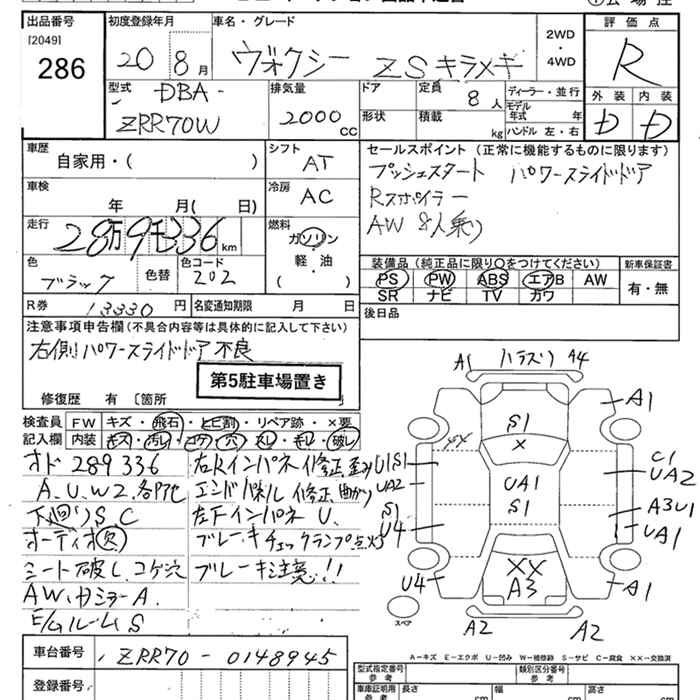 出品番号 初度登録年月 車名・グレード 評価点
[2049]
286
20 8月 ヴォクシー ZSキラメキ 2WD・4WD R
型式 DBA-
ZRR70W
排気量 2000 cc
ドア 定員 8人 ディーラー・並行
形状 積載 kg モデル年式 年
ハンドル 左・右
外装 内装
D D
車歴 自家用・( )
シフト AT
セールスポイント (正常に機能するものに限ります)
プッシュスタート パワースライドドア
Rスポイラー
AW 8人乗り
車検 年 月( 日)
冷房 AC
走行 28万9千336 km
燃料 ガソリン
軽・油
( )
色 ブラック 色替 色コード 202
装備品 (純正品に限り○をつけてください) 新車保証書
PS PW ABS エアB AW 有・無
SR ナビ TV カワ
R券 13330 円 名変通知期限 月 日
後日品
注意事項申告欄(不具合内容等は具体的に記入して下さい)
右側パワースライドドア不良
第5駐車場置き
修復歴 有 〔箇所
検査員記入欄 FW キズ・飛石・ヒビ割・リペア跡・×要
内装 キズ・汚レ・コゲ・穴・スレ・キレ・破レ
オド 289336 右Rインパネ修正歪み
A.U.W2.各所 エンドパネル修正、曲がり
下回りS.C 左下インパネ U.
オーディオ欠 ブレーキチェックランプ点灯
シート破し、コゲ穴 ブレーキ注意!!
AW.ドミラーA.
E/GルームS
A1 ハラスリ A4
A1
S1
×
US1
UA2
S1
U4
UA1
S1
C1
UA2
A3U1
UA1
U4
××
A3
A1
スペア
A2 A2
A−キズ E−エクボ U−凹み W−補修跡 S−サビ C−腐食 ××−交換済
車台番号 ZRR70-0148945
型式指定番号 参考 類別区分番号 参考
登録番号
車庫証明用参考 長さ cm 幅 cm 高さ cm